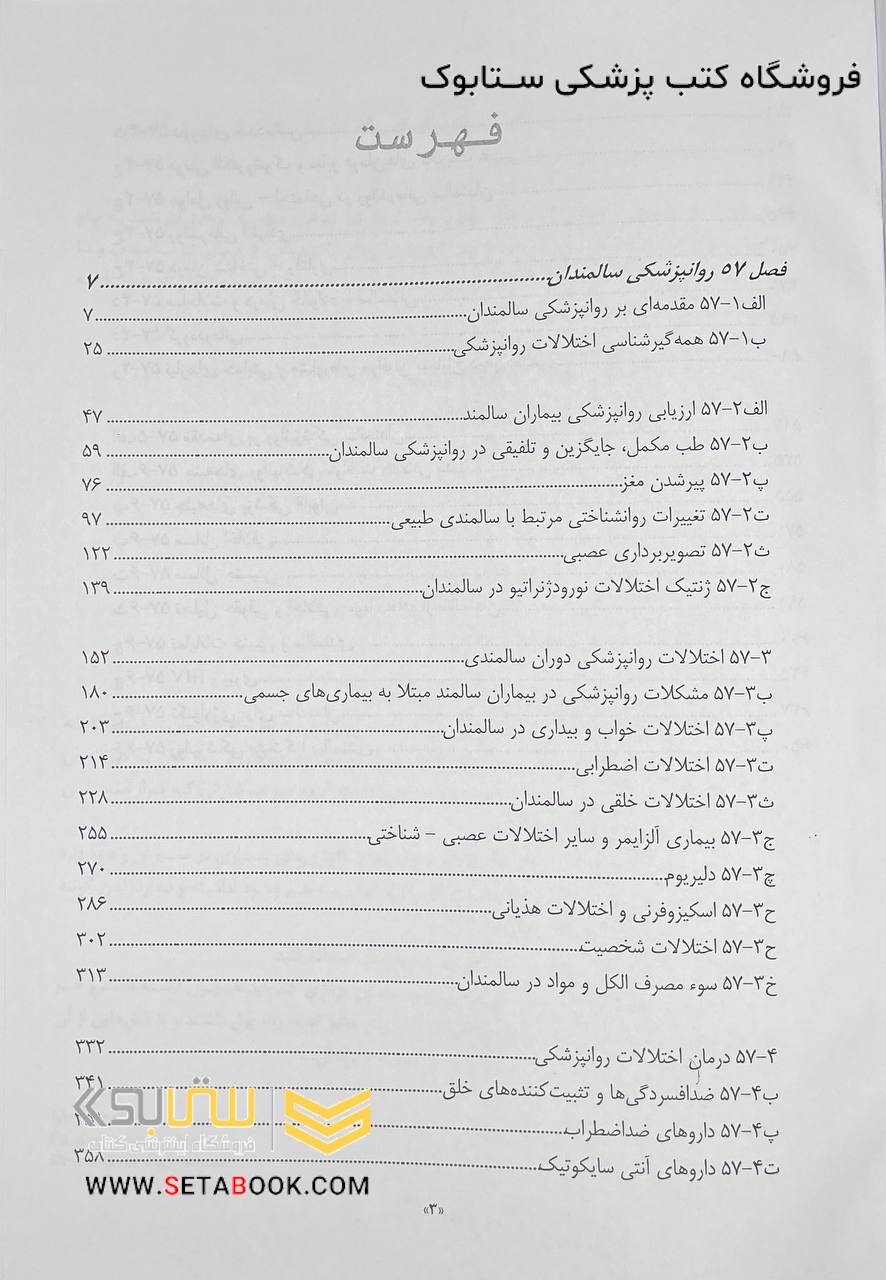 فروشگاه کتب پزشکی ستابوک
فهرست
فصل ۵۷ روانپزشکی سالمندان ۷
الف۱-۵۷ مقدمه‌ای بر روانپزشکی سالمندان ۷
ب۱-۵۷ همه‌گیرشناسی اختلالات روانپزشکی ۲۵
الف۲-۵۷ ارزیابی روانپزشکی بیماران سالمند ۴۷
ب۲-۵۷ طب مکمل، جایگزین و تلفیقی در روانپزشکی سالمندان ۵۹
پ۲-۵۷ پیرشدن مغز ۷۶
ت۲-۵۷ تغییرات روانشناختی مرتبط با سالمندی طبیعی ۹۷
ث۲-۵۷ تصویربرداری عصبی ۱۲۲
ج۲-۵۷ ژنتیک اختلالات نورودژنراتیو در سالمندان ۱۳۹
۵۷-۳ اختلالات روانپزشکی دوران سالمندی ۱۵۲
ب۳-۵۷ مشکلات روانپزشکی در بیماران سالمند مبتلا به بیماری‌های جسمی ۱۸۰
پ۳-۵۷ اختلالات خواب و بیداری در سالمندان ۲۰۳
ت۳-۵۷ اختلالات اضطرابی ۲۱۴
ث۳-۵۷ اختلالات خلقی در سالمندان ۲۲۸
ج۳-۵۷ بیماری آلزایمر و سایر اختلالات عصبی - شناختی ۲۵۵
چ۳-۵۷ دلیریوم ۲۷۰
ح۳-۵۷ اسکیزوفرنی و اختلالات هذیانی ۲۸۶
ح۳-۵۷ اختلالات شخصیت ۳۰۲
خ۳-۵۷ سوء مصرف الکل و مواد در سالمندان ۳۱۳
۵۷-۴ درمان اختلالات روانپزشکی ۳۳۲
ب۴-۵۷ ضدافسردگی‌ها و تثبیت‌کننده‌های خلق ۳۴۱
پ۴-۵۷ داروهای ضداضطراب
ت۴-۵۷ داروهای آنتی سایکوتیک ۳۵۸
ستابوک
فروشگاه اینترنتی کتاب
WWW.SETABOOK.COM
«۳»